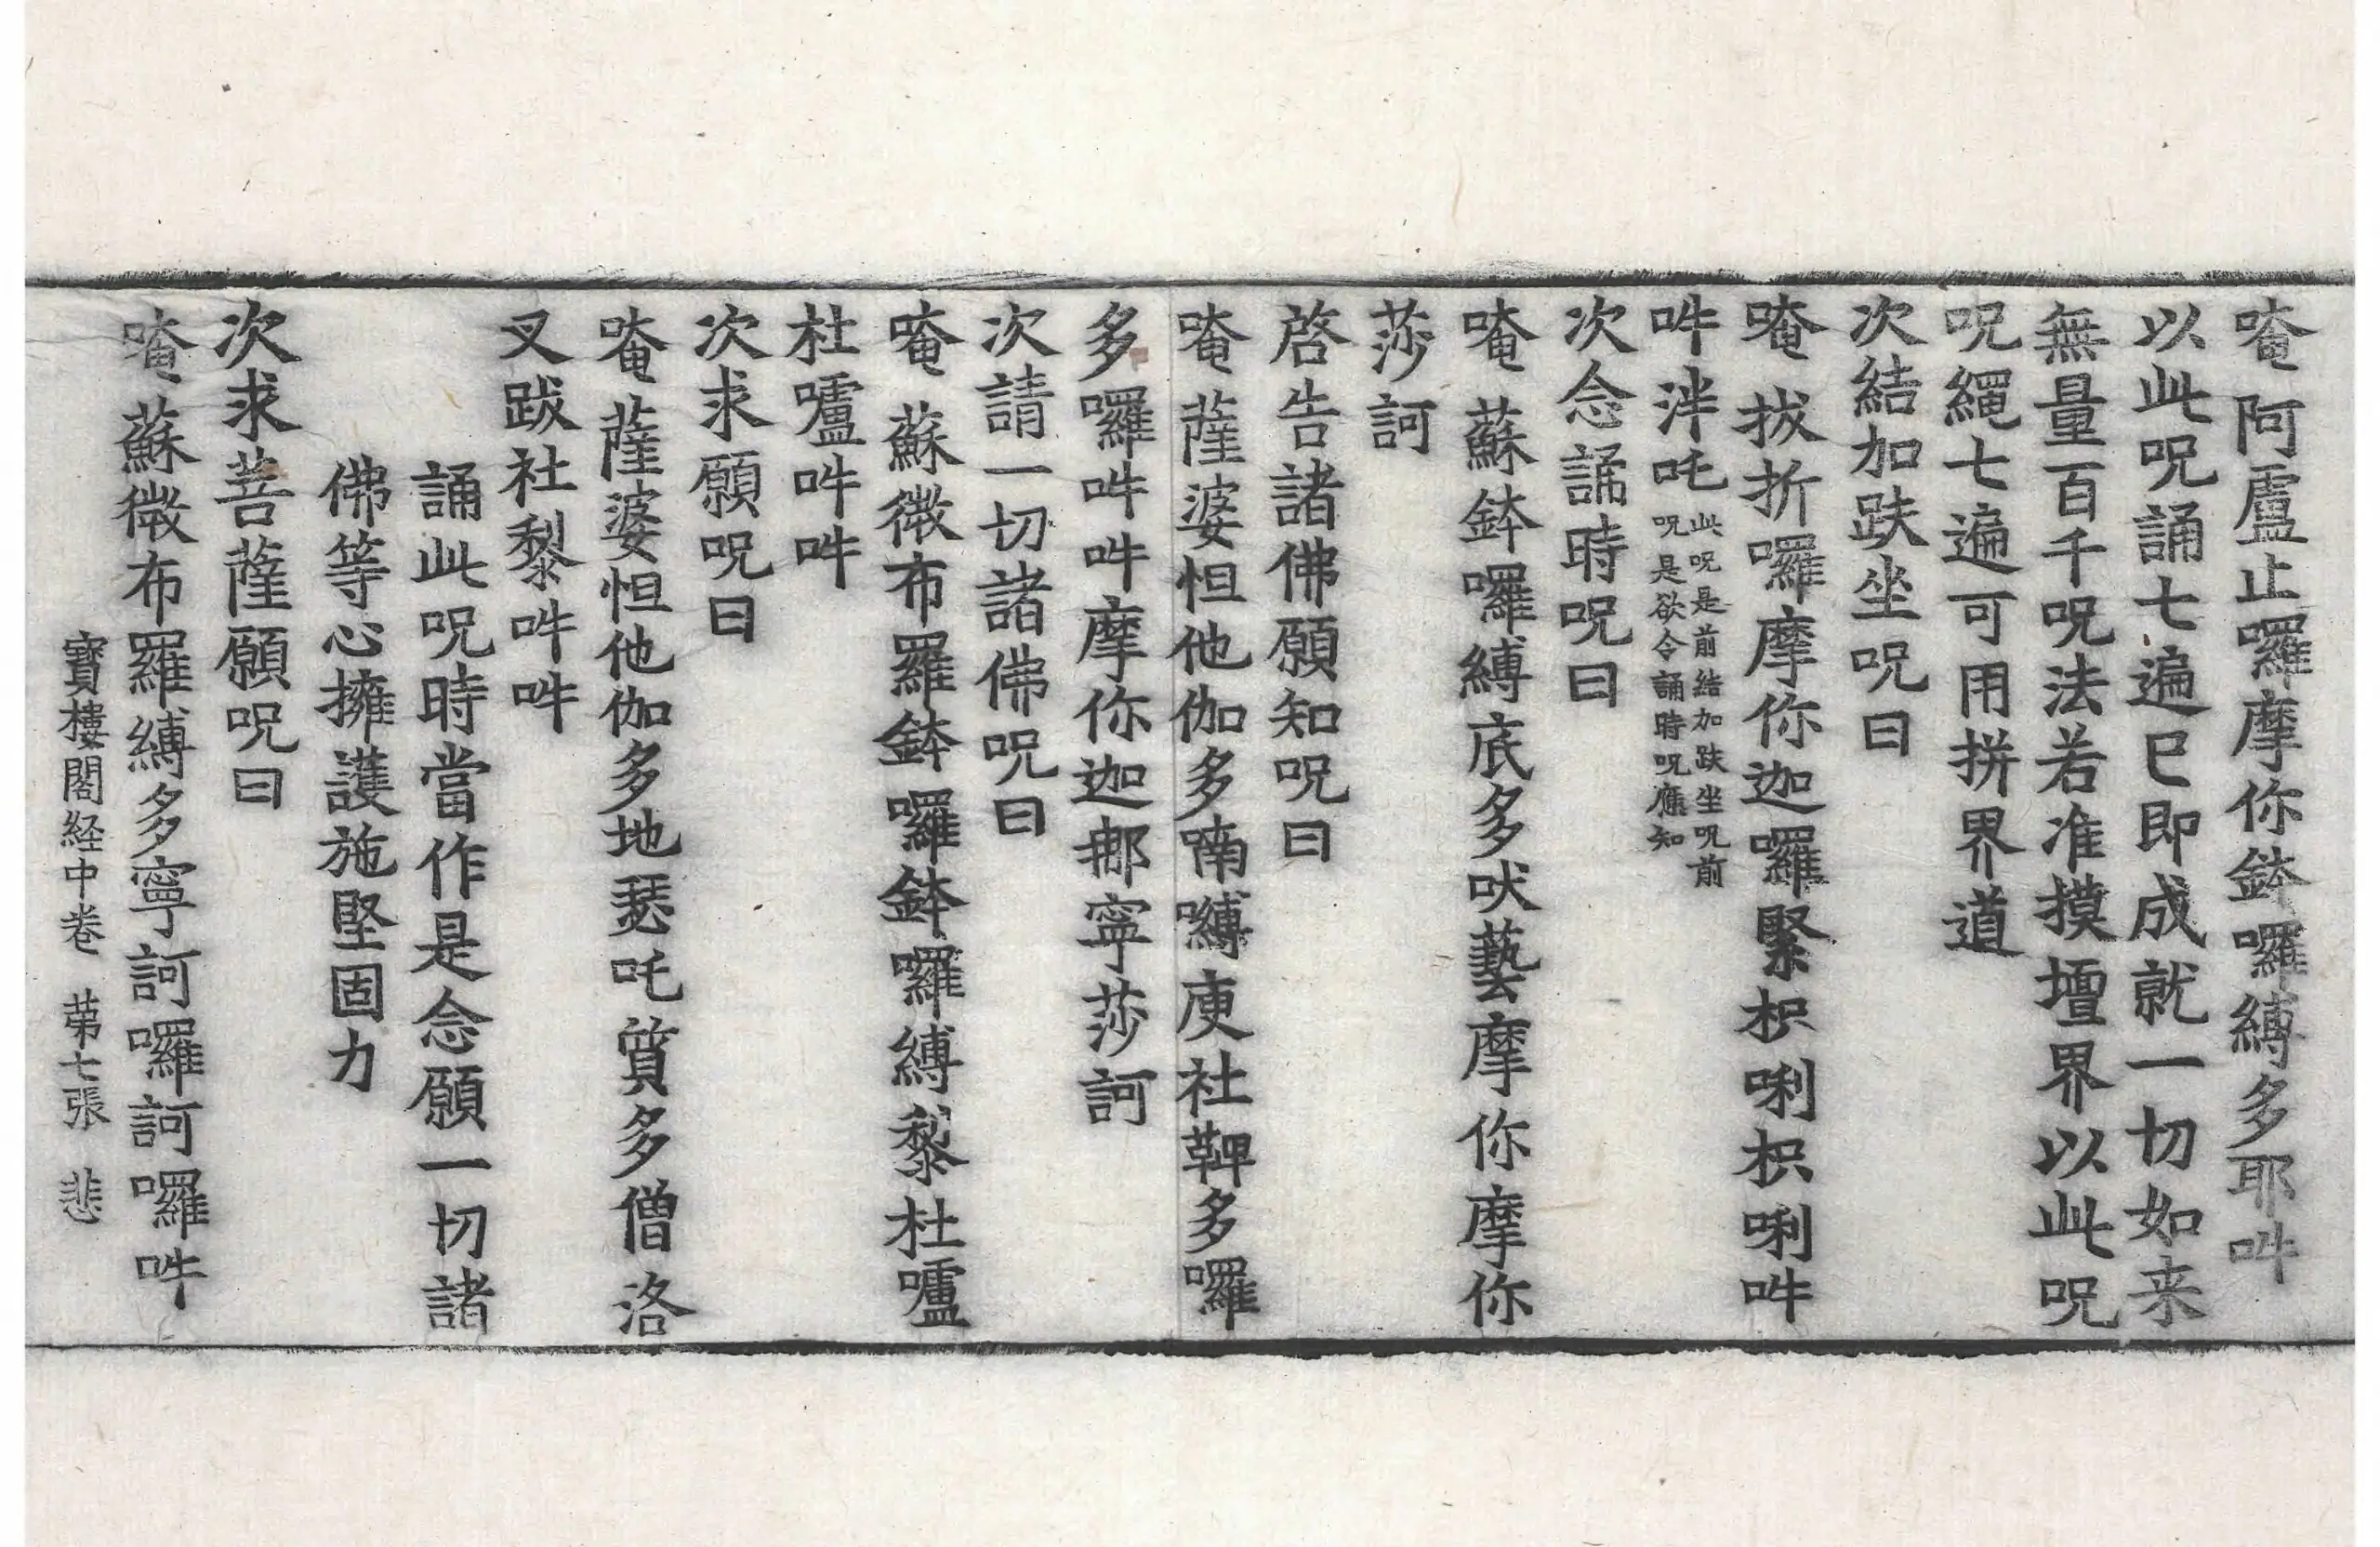 唵阿盧止囉摩你鉢囉縛多耶吽
以此呪誦七遍已即成就一切如来
無量百千呪法若准摸壇界以此呪
呪繩七遍可用拼界道
次結加趺坐呪曰
唵拔折囉摩你迦囉緊枳唎枳唎吽
吽泮吒
此呪是前結加趺坐呪前
呪是欲令誦時呪應知
次念誦時呪曰
唵蘇鉢囉縛底多吠藝摩你摩你
莎訶
啓告諸佛願知呪曰
唵薩婆怛他伽多喃嚩庾社鞞多囉
多囉吽吽摩你迦娜寧莎訶
次請一切諸佛呪曰
唵蘇微布羅鉢囉鉢囉縛黎杜嚧
杜嚧吽吽
次求願呪曰
唵薩婆怛他伽多地瑟吒質多僧洛
叉跋社黎吽吽
誦此呪時當作是念願一切諸
佛等心擁護施堅固力
次求菩薩願呪曰
唵蘇微布羅縛多寧訶囉訶囉吽
寶樓閣経中卷 苐七張 悲